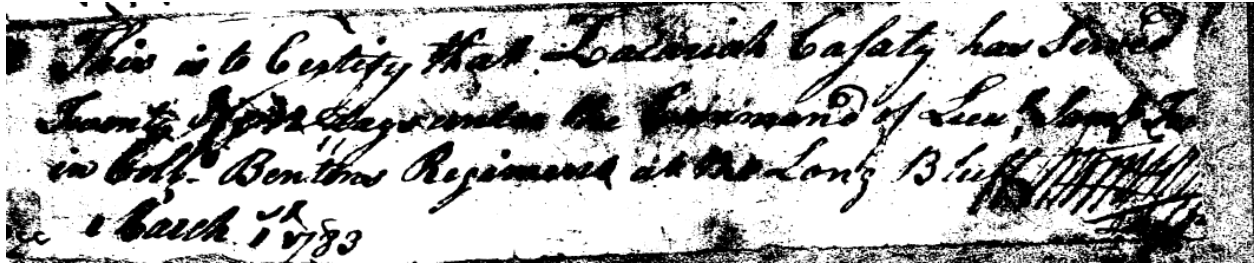 This is to Certify that Zachariah Casaty has Served
Twenty days under the Command of Lieu.t Sam.l
in Coll.o Bentons Regiment at the Long Bluff
March 1st 1783